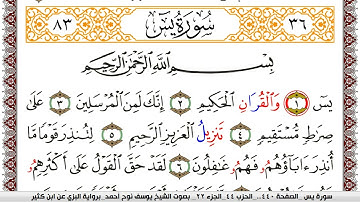 ٣٦ سُورَةُ يسٓ ٨٣
بِسْمِ ٱللَّهِ ٱلرَّحْمَٰنِ ٱلرَّحِيمِ
يسٓ ١ وَٱلْقُرَانِ ٱلْحَكِيمِ ٢ إِنَّكَ لَمِنَ ٱلْمُرْسَلِينَ ٣ عَلَىٰ
صِرَٰطٍ مُّسْتَقِيمٍ ٤ تَنزِيلُ ٱلْعَزِيزِ ٱلرَّحِيمِ ٥ لِتُنذِرَ قَوْمًا مَّا
أُنذِرَ ءَابَآؤُهُمُۥ فَهُمُۥ غَٰفِلُونَ ٦ لَقَدْ حَقَّ ٱلْقَوْلُ عَلَىٰٓ أَكْثَرِهِمُۥ
سورة يس _الصفحة ٤٤٠_ الحزب ٤٤_ الجزء ٢٢_ بصوت الشيخ يوسف نوح أحمد برواية البزي عن ابن كثير